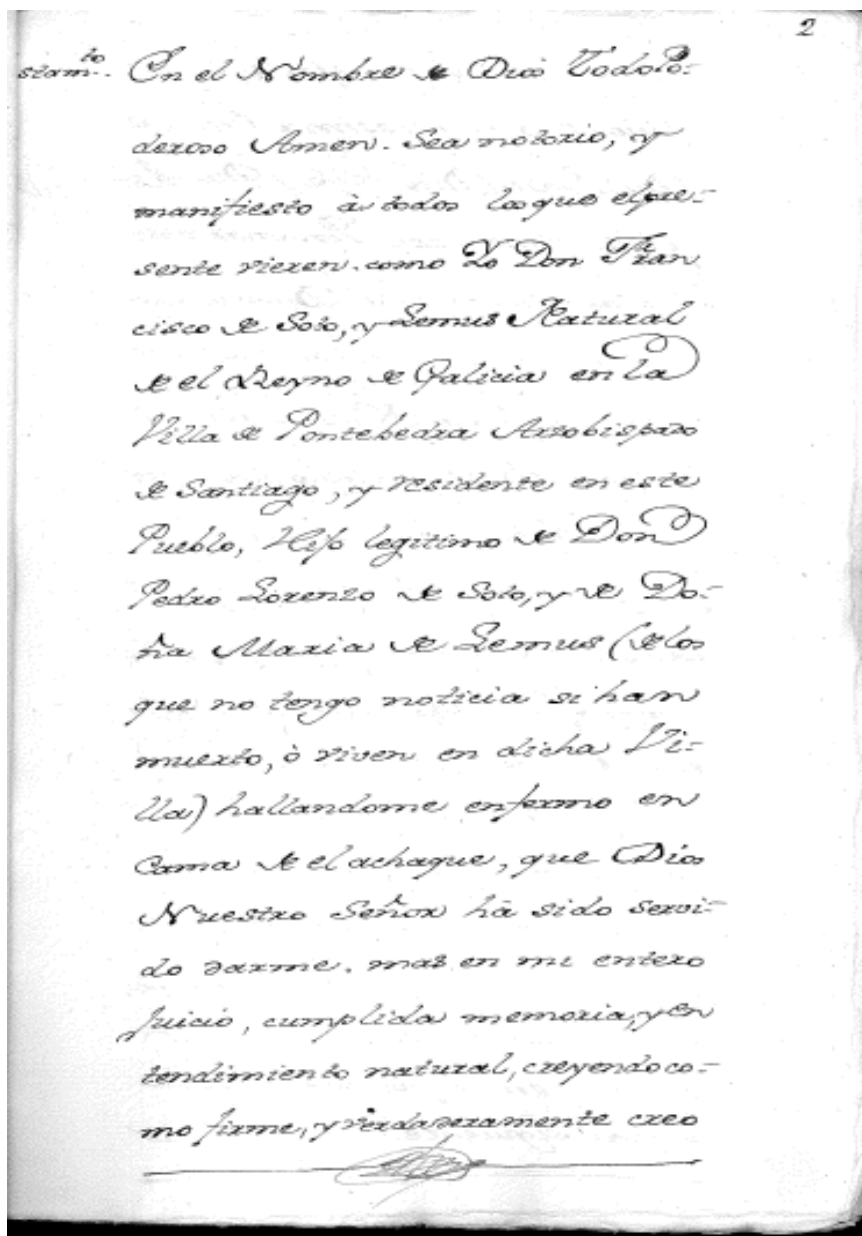 2
stam.to
En el Nombre de Dios TodoPo-
deroso Amen. Sea notorio, y
manifiesto à todos los que el pre-
sente vieren. como Yo Don Fran
cisco de Soto, y Lemus Natural
de el Reyno de Galicia en la
Villa de Pontebedra Arzobispado
de Santiago, y residente en este
Pueblo, Hijo legitimo de Don
Pedro Lorenzo de Soto, y de Do-
ña Maria de Lemus (de los
que no tengo noticia si han
muerto, ò viven en dicha Vi-
lla) hallandome enfermo en
Cama de el achaque, que Dios
Nuestro Señor hà sido servi-
do darme. mas en mi entero
Juicio, cumplida memoria, y en
tendimiento natural, creyendo co-
mo firme, y verdaderamente creo